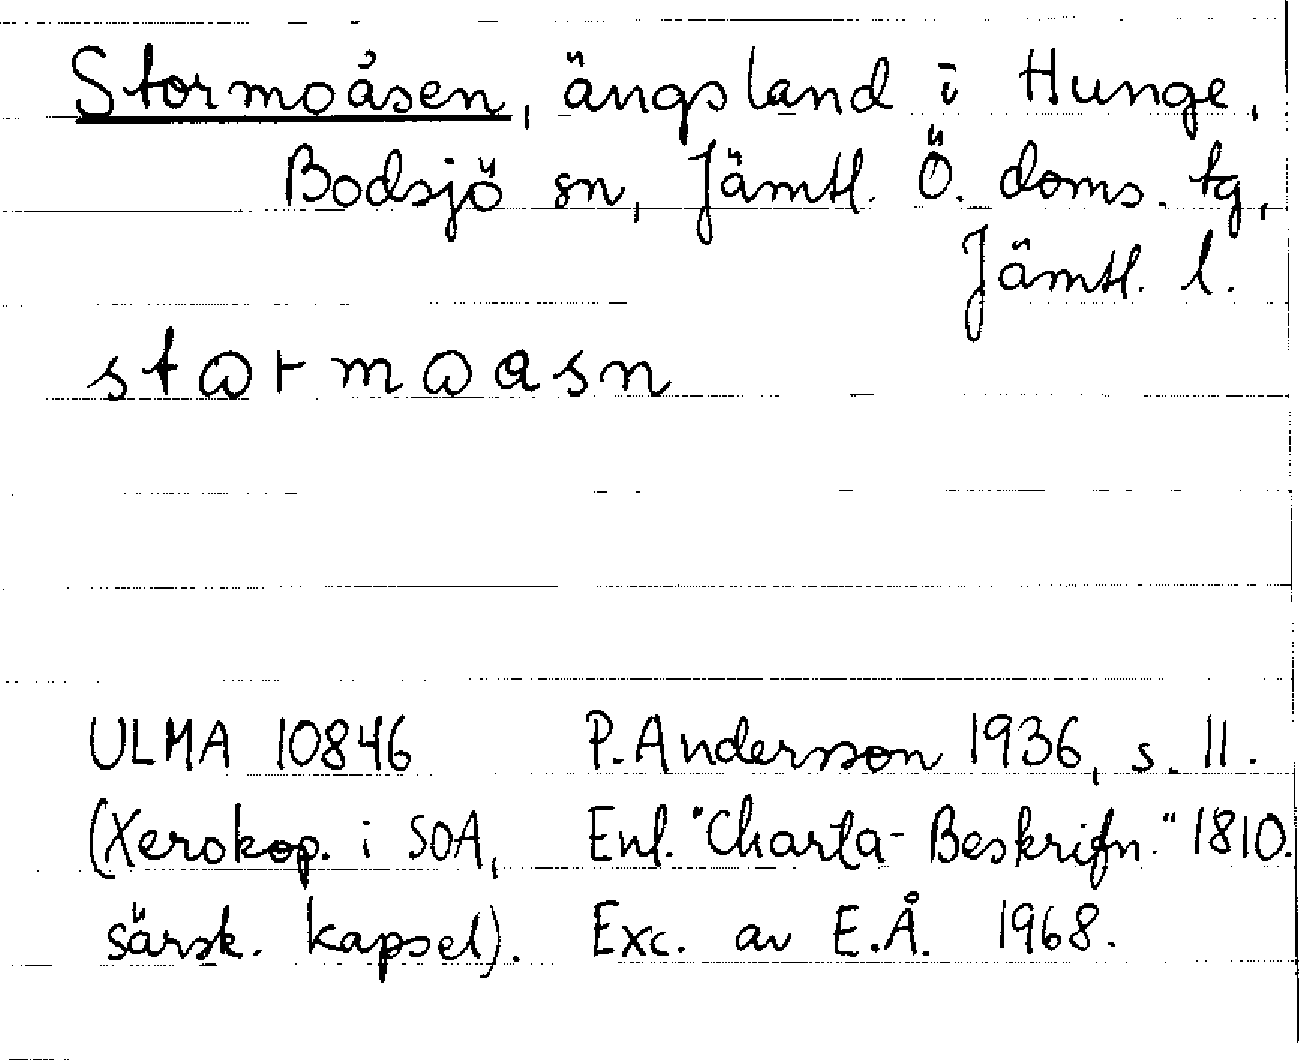 Stormoåsen, ängsland i Hunge,
Bodsjö sn, Jämtl. Ö. doms. tg,
Jämtl. l.
ULMA 10846 P. Andersson 1936, s. 11.
(Xerokop. i SOA, Enl. "Charta-Beskrifn." 1810.
särsk. kapsel). Exc. av E.Å. 1968.